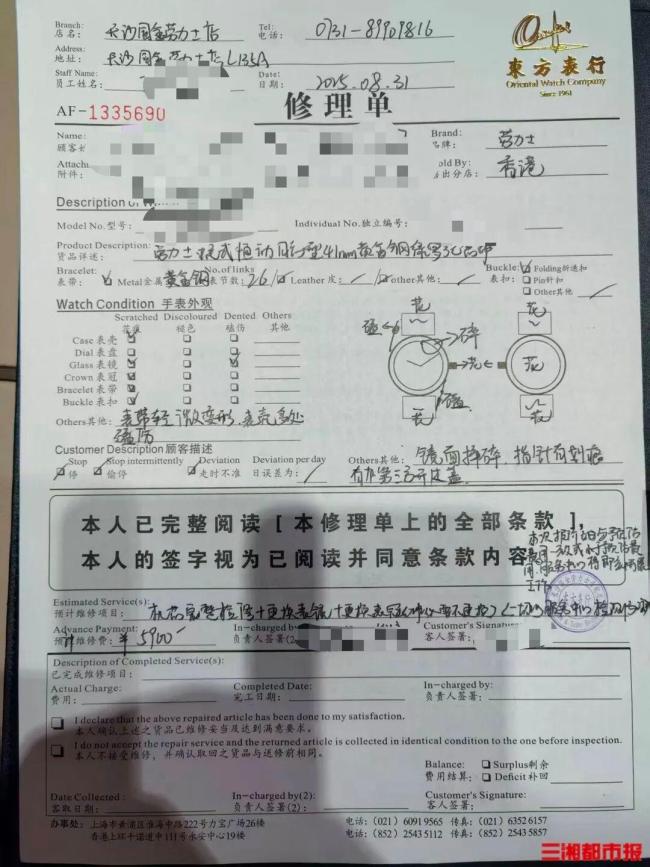 Branch:
店名: 长沙国金劳力士店
Tel:
电话: 0731-89909816
Address:
地址: 长沙国金劳力士店L135A
Staff Name:
员工姓名:
Date:
日期: 2025.08.31
東方表行
Oriental Watch Company
Since 1961
AF-1335690
修理单
Name:
Brand:
劳力士
附件:
香港
Model No.型号:
Individual No.独立编号:
Product Description:
货品详述: 41mm
Bracelet:
表带: Metal金属 黄金钢
No. of links
表节数: 26
Leather 皮:
other其他:
Buckle:
表扣:
Folding折迭扣
Pin针扣
Other其他
Watch Condition 手表外观
Scratched Discoloured Dented Others
花痕 褪色 磕伤 其他
Case 表壳
Dial 表盘
Glass 表镜
Crown 表冠
Bracelet 表带
Buckle 表扣
花
碎
花
花
Others其他: 表带轻微变形. 表壳多处
磕伤
Customer Description顾客描述
Stop
停
Stop intermittently
偷停
Deviation
走时不准
Deviation per day
日误差为:
Others其他: 镜面摔碎. 指针有划痕
本人已完整阅读[本修理单上的全部条款],
本人的签字视为已阅读并同意条款内容
Estimated Service(s):
预计维修项目:
Advance Payment:
预计维修费: ¥5900
In-charged by:
负责人签署(2
Customer's Signature:
客人签署:
Description of Completed Service(s):
已完成维修项目:
Actual Charge:
费用:
Completed Date:
完工日期:
In-charged by:
负责人签署:
I declare that the above repaired article has been done to my satisfaction.
本人确认上述之货品已维修妥当及达到满意要求。
I do not accept the repair service and the returned article is collected in identical condition to the one before inspection.
本人不接受维修，并确认取回之货品与送修前相同。
Balance:
费用结算:
Surplus剩余
Deficit补回
Date Collected:
客取日期:
In-charged by:
负责人签署(2):
Customer's Signature:
客人签署:
办事处: 上海市黄浦区淮海中路222号力宝广场26楼
电话: (021) 6091 9565 传真: (021) 6352 6157
香港上环干诺道中111号永安中心19楼
电话: (852) 2543 5112 传真: (852) 2543 5857
三湘都市报